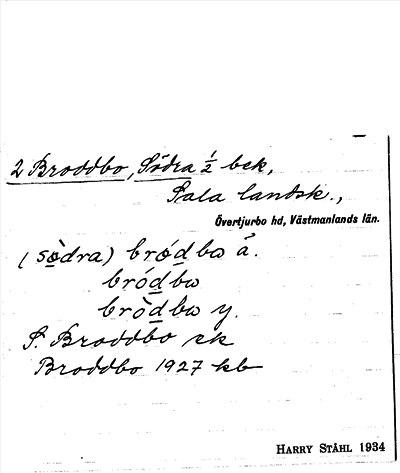 2 Broddbo, Södra ½ bek,
Sala landsk.,
Övertjurbo hd, Västmanlands län.
(sö̀dra) bródbω å.
bródbω
brò̀dbω y.
S. Broddbo sk
Broddbo 1927 kb
HARRY STÅHL 1934